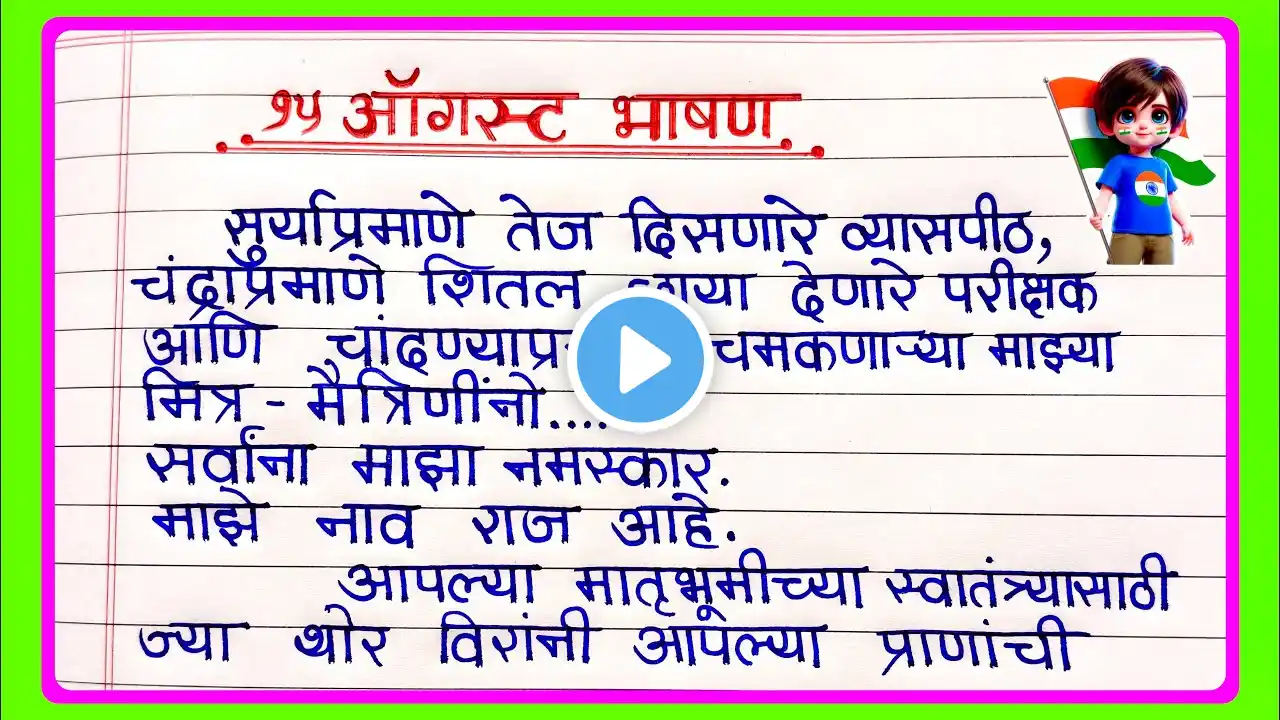 १५ ऑगस्ट भाषण.
सुर्याप्रमाणे तेज दिसणारे व्यासपीठ,
चंद्राप्रमाणे शितल देणारे परीक्षक
आणि चमकणाऱ्या माझ्या
मित्र - मैत्रिणींनो....
सर्वांना माझा नमस्कार.
माझे नाव राज आहे.
आपल्या मातृभूमीच्या स्वातंत्र्यासाठी
ज्या थोर विरांनी आपल्या प्राणांची